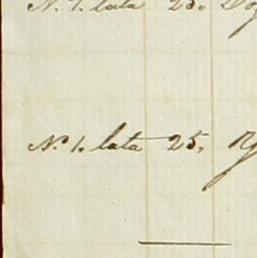 N. 1. lata 25.
N.º 1. lata 25.